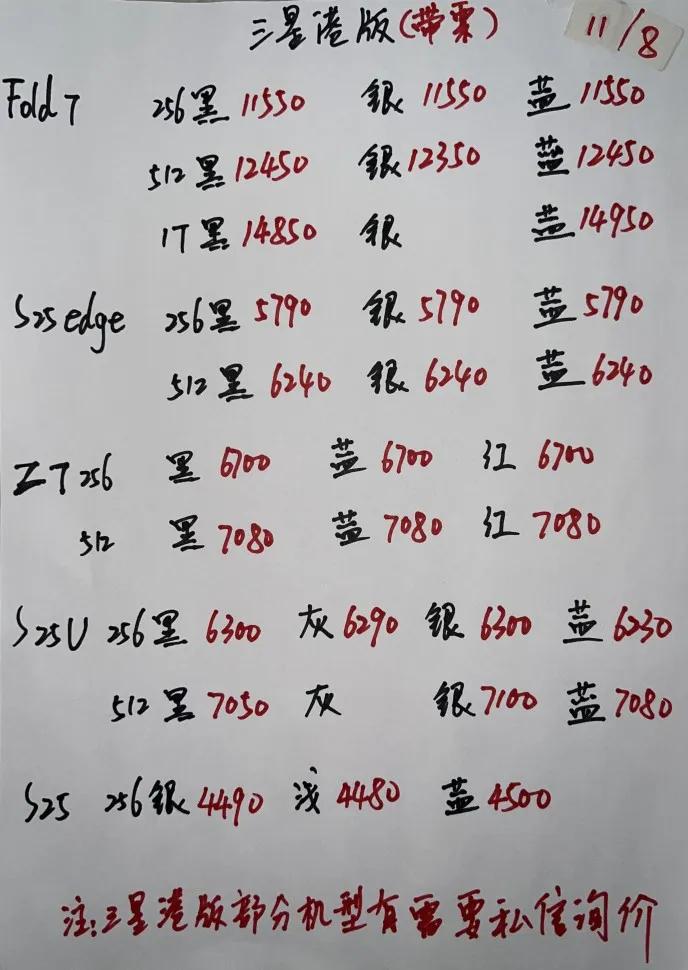 三星港版(带票) 11/8
Fold7 256黑11550 银11550 蓝11550
512黑12450 银12350 蓝12450
1T黑14850 银 蓝14950
S25edge 256黑5790 银5790 蓝5790
512黑6240 银6240 蓝6240
Z7 256 黑6700 蓝6700 红6700
512 黑7080 蓝7080 红7080
S25U 256黑6300 灰6290 银6300 蓝6230
512黑7050 灰 银7100 蓝7080
S25 256银4490 浅4480 蓝4500
注:三星港版部分机型有需要私信询价